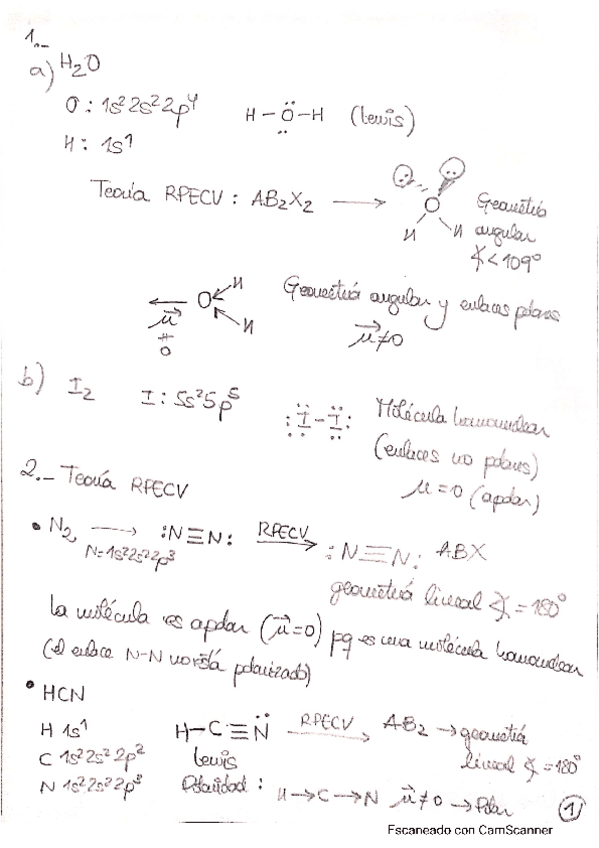 1.-
a) H2O
O: 1s² 2s² 2p⁴ H-Ö-H (Lewis)
H: 1s¹
Teoría RPECV: AB2X2 → O H H Geometría angular ∡<109°
← O H H Geometría angular y enlaces polares
μ⃗ μ⃗≠0
≠
0
b) I2 I: 5s² 5p⁵ :I-I: Molécula homonuclear
(enlaces no polares)
μ=0 (apolar)
2.- Teoría RPECV
• N2 → :N≡N: RPECV → :N≡N: ABX
N=1s² 2s² 2p³ geometría lineal ∡=180°
La molécula es apolar (μ⃗=0) pq es una molécula homonuclear
(el enlace N-N no está polarizado)
• HCN
H 1s¹ H-C≡N RPECV → AB2 → geometría
C 1s² 2s² 2p² Lewis lineal ∡=180°
N 1s² 2s² 2p³ Polaridad: H→C→N μ⃗≠0 → Polar 1
Escaneado con CamScanner